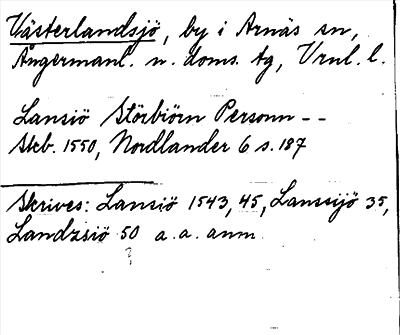 Västerlandsjö, by i Arnäs sn,
Ångermanl. n. doms. tg, Vrnl. l.
Lansiö Störbiörn Personn --
Skb. 1550, Nordlander 6 s. 187
Skrives: Lansiö 1543, 45, Lanssijö 35,
Landzsiö 50 a.a. anm.
?